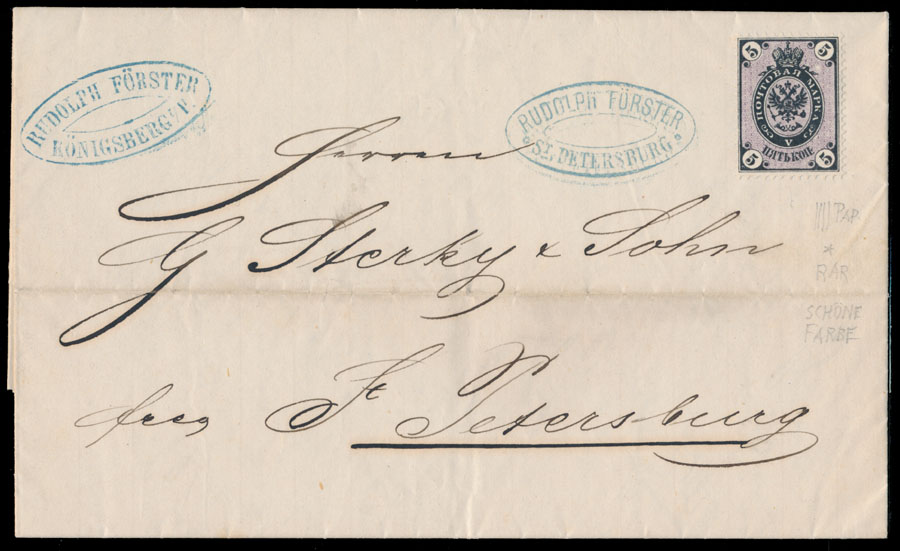 RUDOLPH FÖRSTER
KÖNIGSBERG i/P.
RUDOLPH FÖRSTER
ST. PETERSBURG
5 5
ПОЧТОВАЯ МАРКА
V
ПЯТЬ КОП
5 5
Herren
G Sterky & Sohn
frco St Petersburg
PAP
*
RAR
SCHÖNE
FARBE